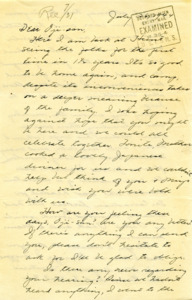 Rec 7/31
July
EXAMINED
Dear Ojii-san:
Here I am back at
seeing the folks for the first
time in 1½ years. It's so good
to be home again, and being,
despite its inconveniences takes
on a deeper meaning because
of the family. I was hoping
against hope that you might
be here and we could all
celebrate together. Mother
cooked a lovely Japanese
dinner for us and we
but think of you
and wish you were both
with us.
How are you feeling these
days, Ojii-san? Are you any better?
If there's anything I can send
you, please don't hesitate to
ask for I'll be glad to oblige.
Is there any news regarding
your hearing? Since I haven't
heard anything, I went to the